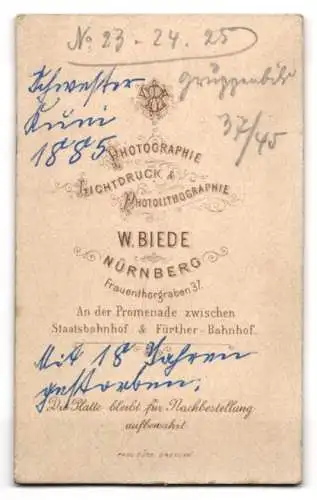 No 23 - 24. 25
Schwester
Gruppenbild
Kuni
37/45
1885
PHOTOGRAPHIE
LICHTDRUCK &
PHOTOLITHOGRAPHIE
W. BIEDE
NÜRNBERG
Frauenthorgraben 37.
An der Promenade zwischen
Staatsbahnhof & Fürther-Bahnhof.
Mit 18 Jahren
gestorben.
Die Platte bleibt für Nachbestellung
aufbewahrt